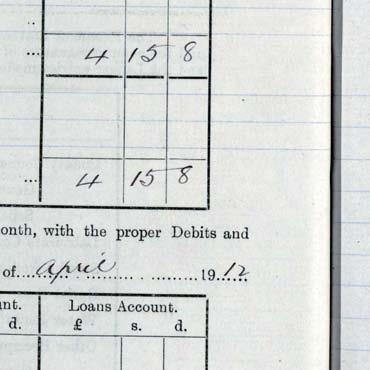 ..
... 4 15 8
... 4 15 8
onth, with the proper Debits and
of....april.... .......... 1912
nt. Loans Account.
d. £ s. d.